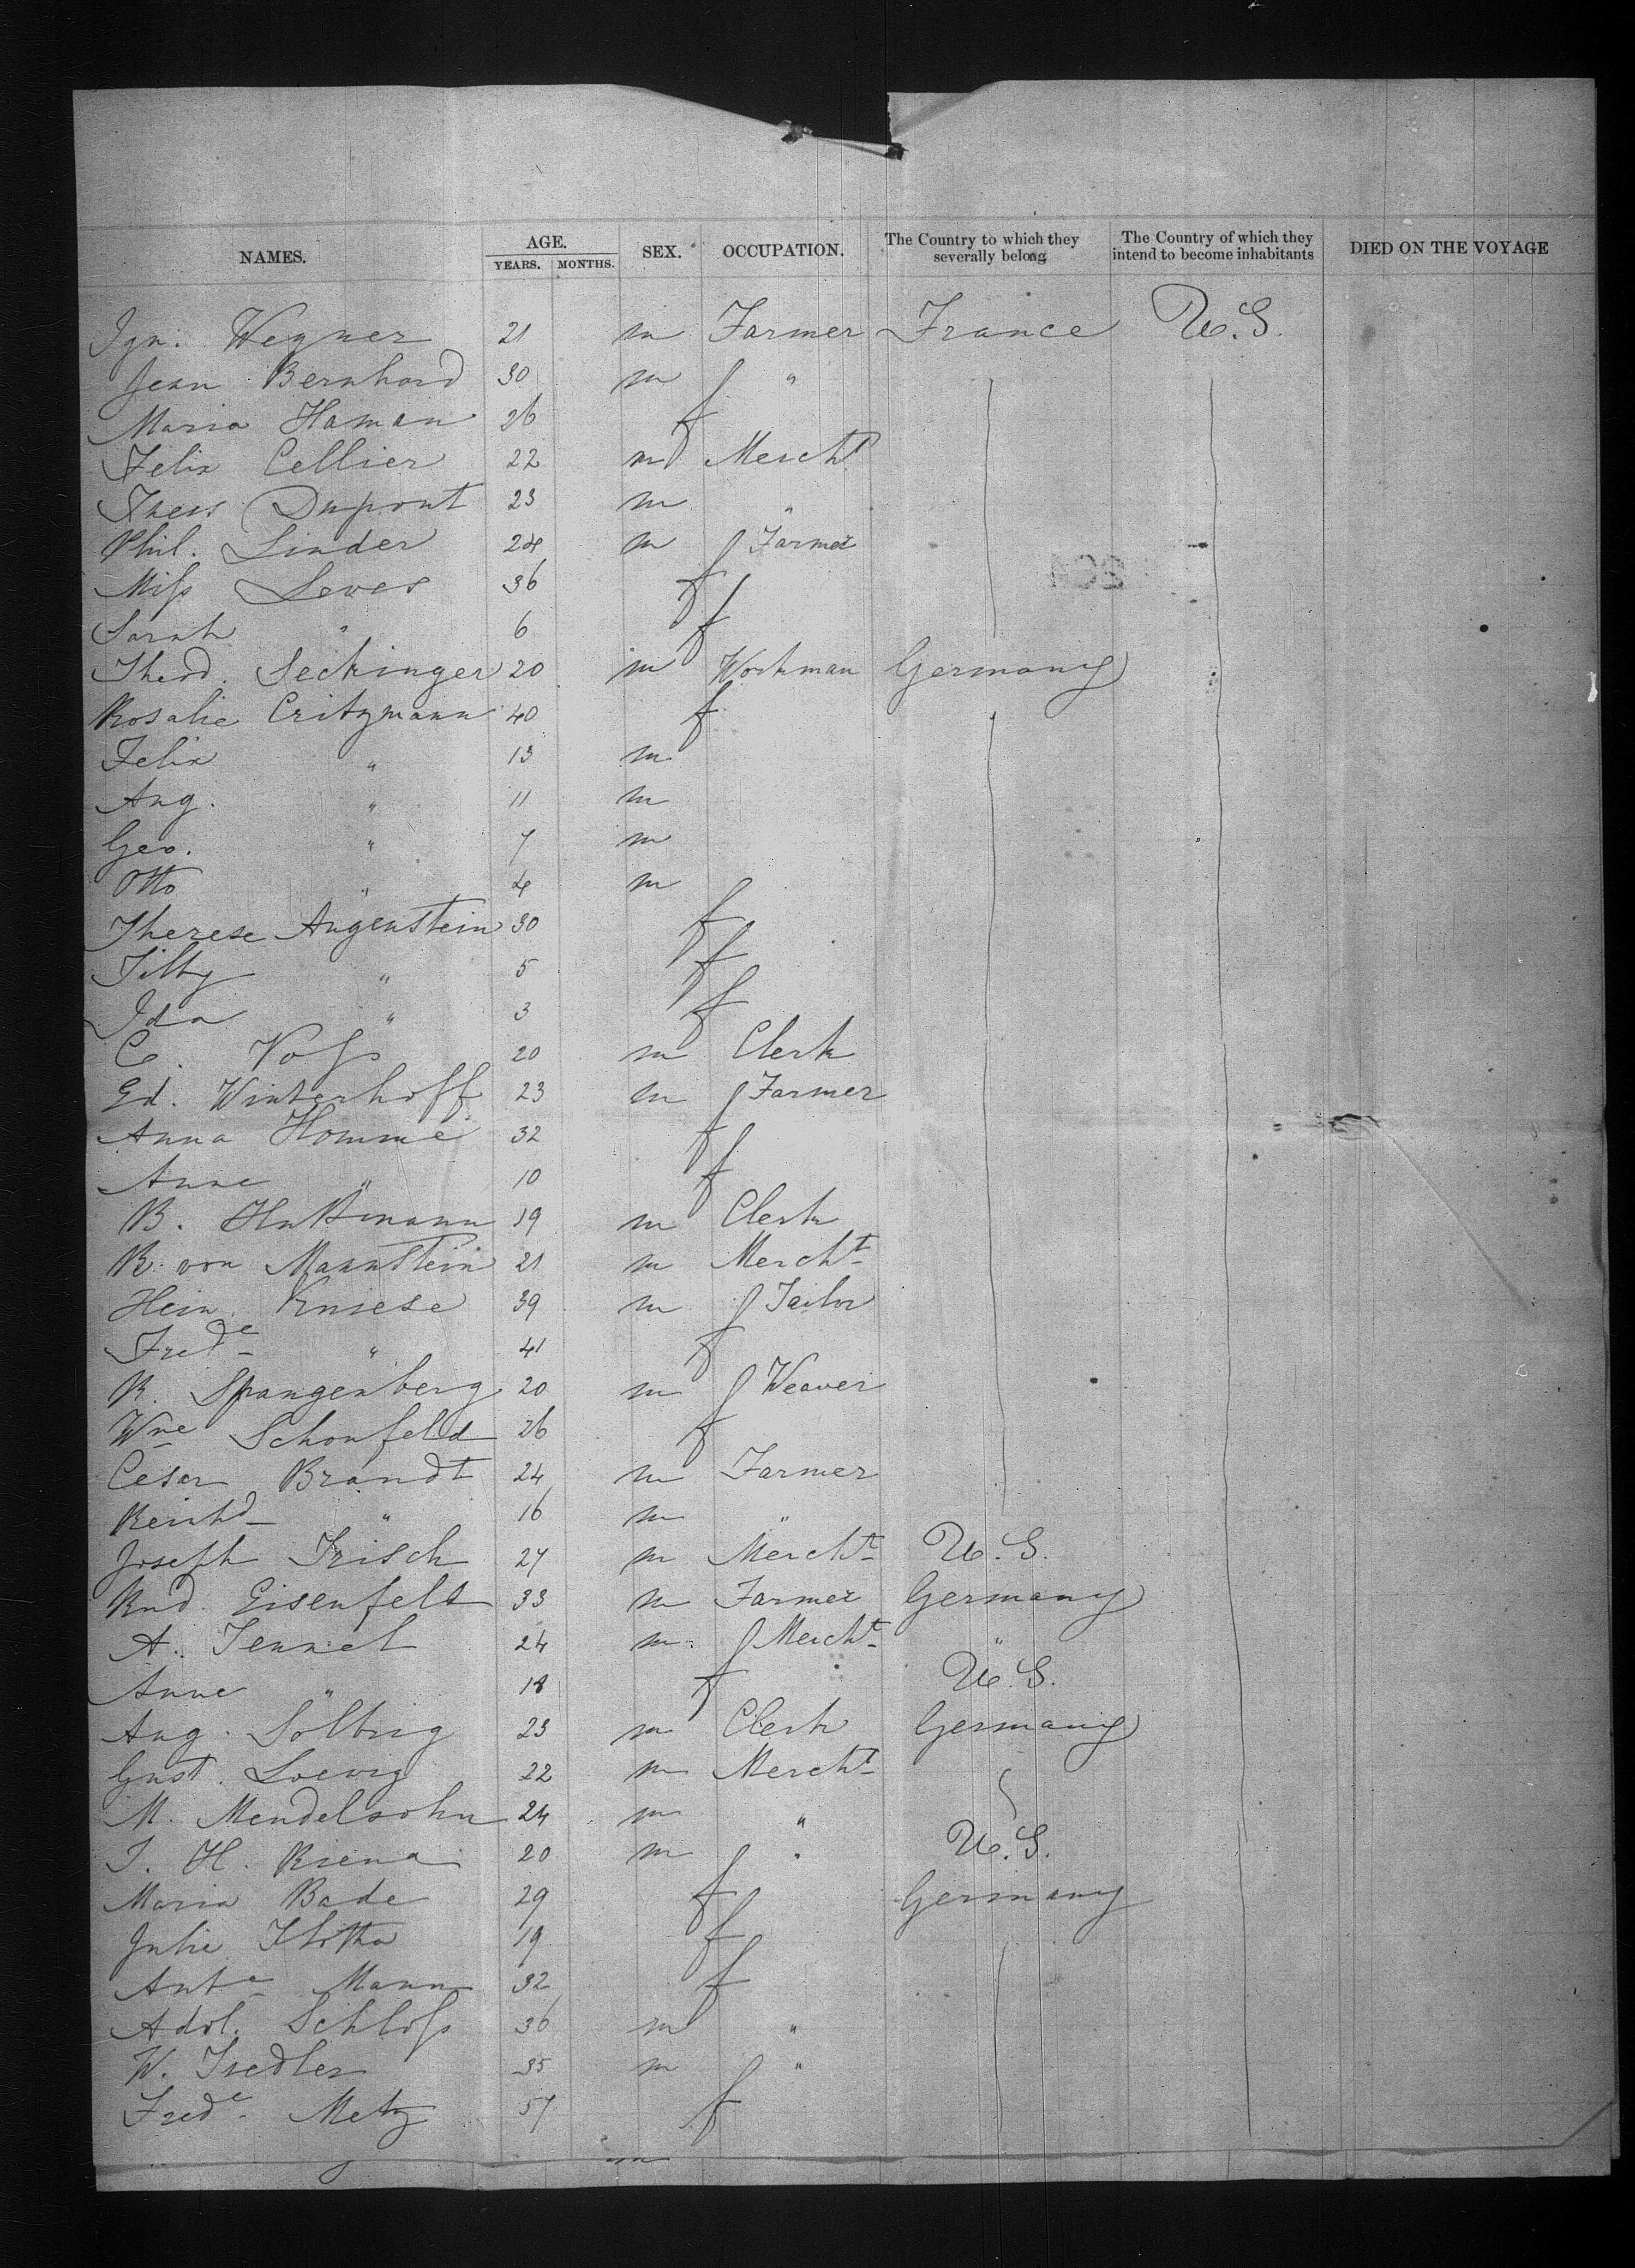 NAMES. AGE. YEARS. MONTHS. SEX. OCCUPATION. The Country to which they severally belong The Country of which they intend to become inhabitants DIED ON THE VOYAGE
Ign. Wegner 21 m Farmer France U.S.
Jean Bernhard 30 m "
Maria Haman 26 f
Felix Cellier 22 m Mercht
Dupont 23 m "
Phil. Linder 24 m Farmer
Miss Leves 36 f
Sarah " 6 f
Theod. Seckinger 20 m Workman Germany
Rosalie Critzmann 40 f
Felix " 13 m
Aug. " 11 m
Geo. " 7 m
Otto " 4 m
Therese Augenstein 30 f
Tilly " 5 f
Ida " 3 f
C. Voss 20 m Clerk
Ed. Winterhoff 23 m Farmer
Anna Homme 32 f
Anne " 10 f
B. Huttmann 19 m Clerk
R. von Mannstein 21 m Mercht
Hein. Kniese 39 m Tailor
Frede " 41 f
R. Spangenberg 20 m Weaver
Wne Schonfeld 26 f
Cesar Brandt 24 m Farmer
Reinhd " 16 m "
Joseph Frisch 27 m Mercht U.S.
Rud. Eisenfeld 33 m Farmer Germany
A. Tennel 24 m Mercht "
Anne " 18 f U.S.
Aug. Solbrig 23 m Clerk Germany
Gust. Loewig 22 m Mercht
M. Mendelsohn 24 m "
J. H. 20 m " U.S.
Maria Bade 29 f Germany
Julie 19 f
Ante Mann 32 f
Adol. Schloss 36 m "
W. 35 m "
Frede Metz 57 f